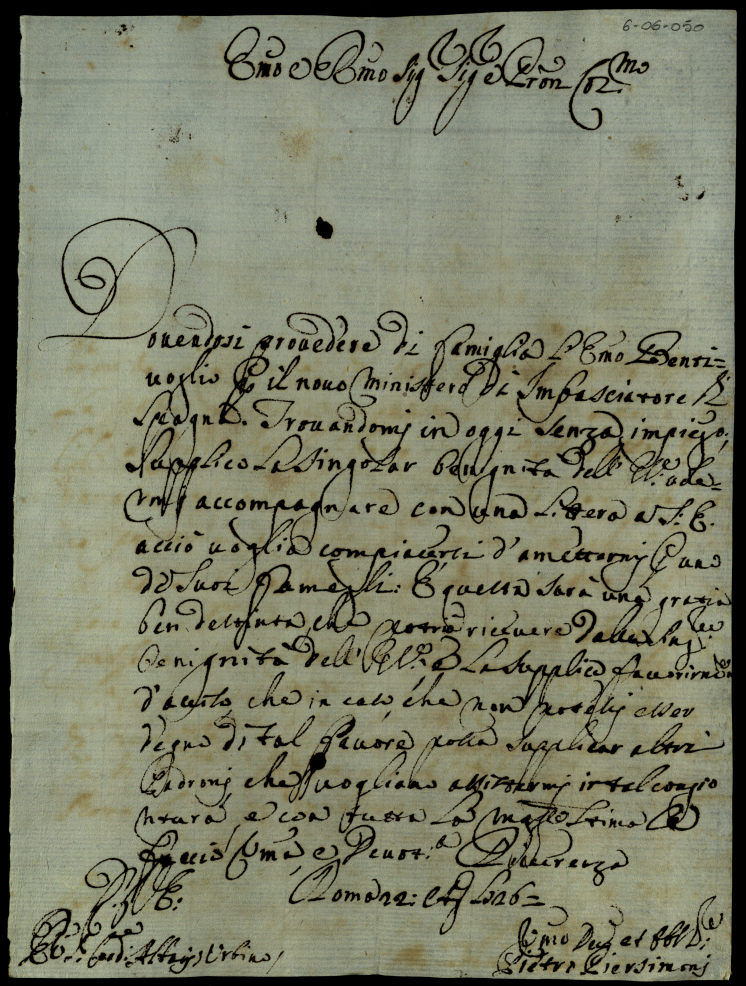 6-06-050
Emo e Rmo Sig Sig e Pron Col.mo
Dovendosi provedere di famiglia L'Emo Benti=
voglio P il novo Ministero di Imbasciatore di
Spagna. Trovandomj in oggi senza impiego,
supplico la singolar benignità dell' E.V.
accompagnare con una littera a S.E.
acciò voglia compiacersi d'amettermj P uno
de Suoi Famegli: E questa sarà una grazia
ben destinta, che potrò ricevere dalla
benignità dell' E.V. e la supplico favorirmi
d'aviso che in caso che non potessj esser
degno di tal favore possa supplicar altri
Padronj che vogliano assistermj in tal congio
ntura, e con tutta la stima Le
faccio Uma e Devot.a Riverenza
D. V. E. Roma 22:
Card: Urbino
Umo Dev et Obl
Pietro Piersimonj